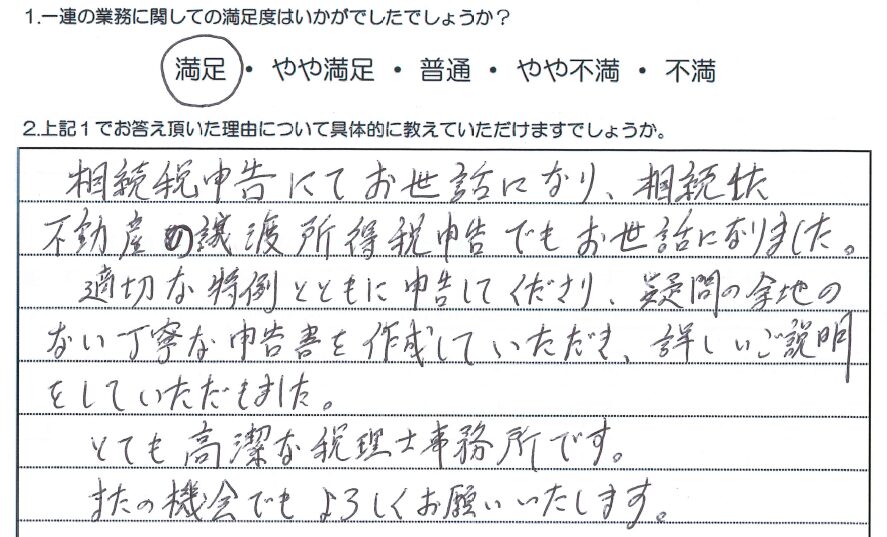 1.一連の業務に関しての満足度はいかがでしたでしょうか？
満足・やや満足・普通・やや不満・不満
2.上記１でお答え頂いた理由について具体的に教えていただけますでしょうか。
相続税申告にてお世話になり、相続した
不動産の譲渡所得税申告でもお世話になりました。
適切な特例とともに申告してくださり、疑問の余地の
ない丁寧な申告書を作成していただき、詳しいご説明
をしていただきました。
とても高潔な税理士事務所です。
またの機会でもよろしくお願いいたします。